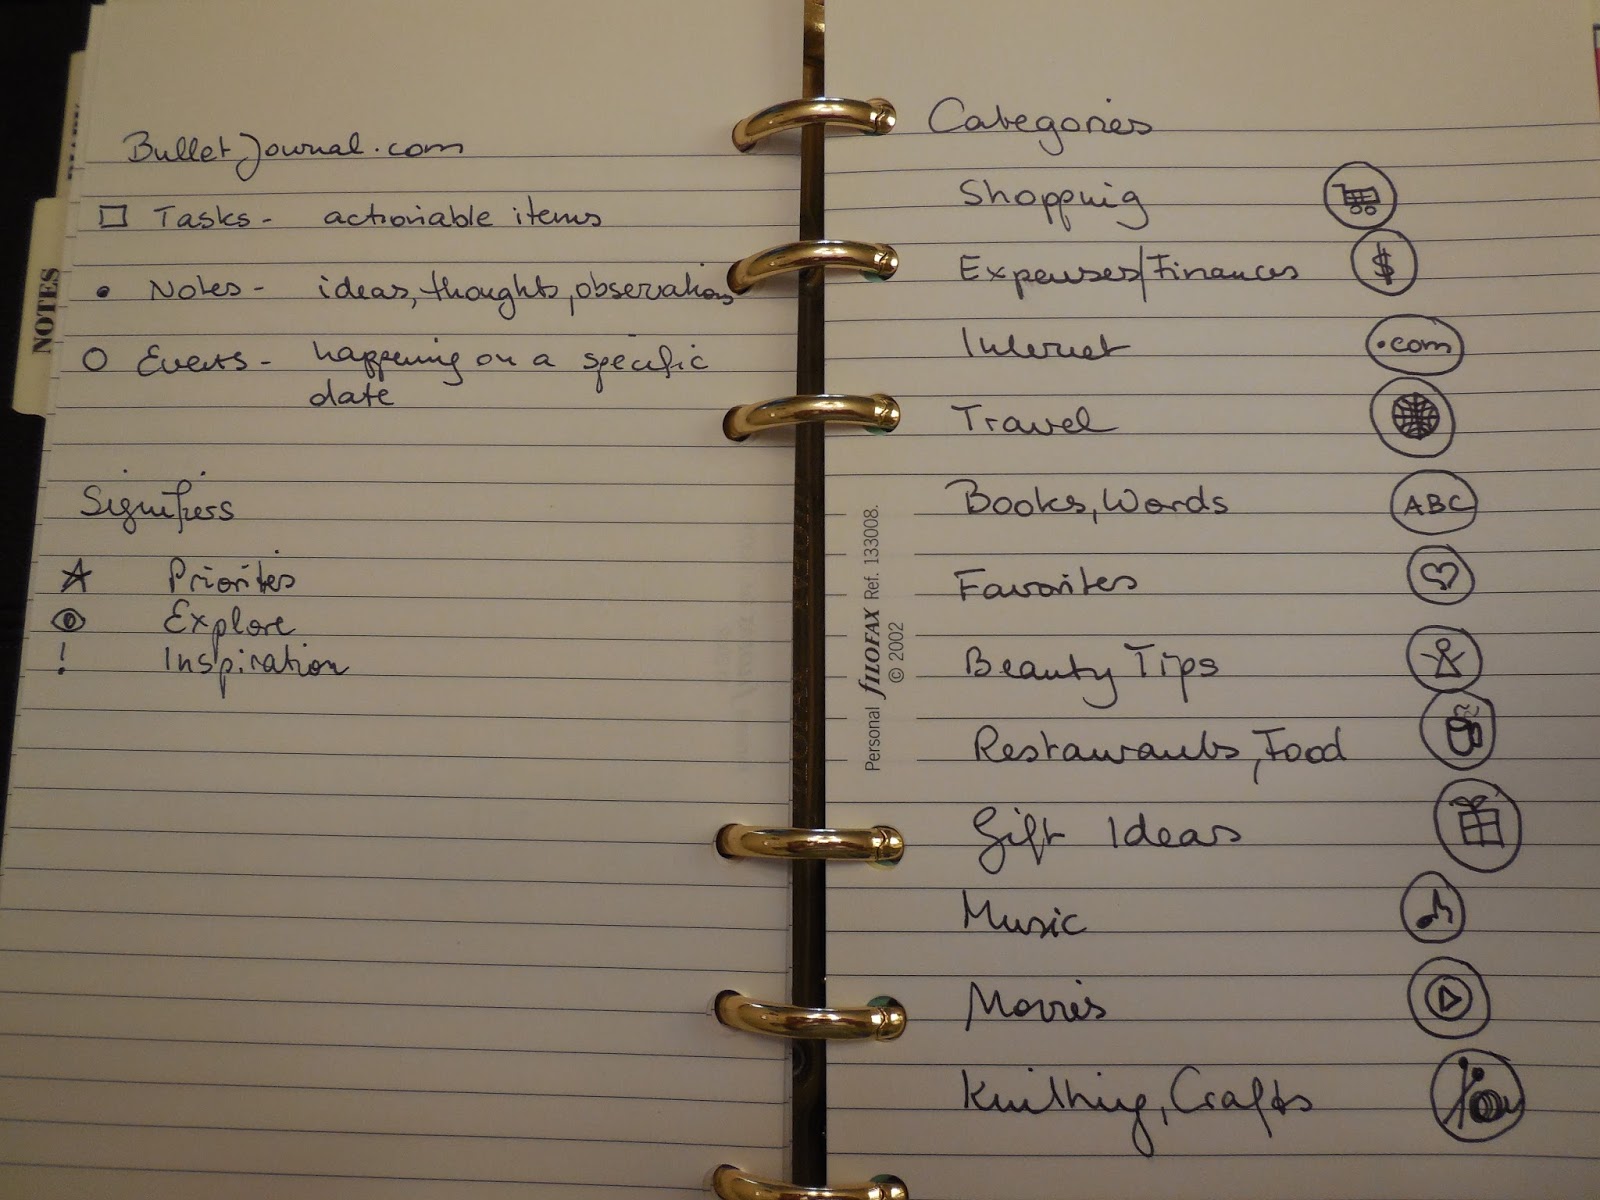 BulletJournal.com
Tasks - actionable items
Notes - ideas, thoughts, observations
Events - happening on a specific
date
Signifiers
Priorites
Explore
! Inspiration
NOTES
Personal FILOFAX Ref. 133008.
© 2002
Categories
Shopping
Expenses/Finances $
Internet .com
Travel
Books, Words ABC
Favorites
Beauty Tips
Restaurants, Food
Gift Ideas
Music
Movies
Knitting, Crafts